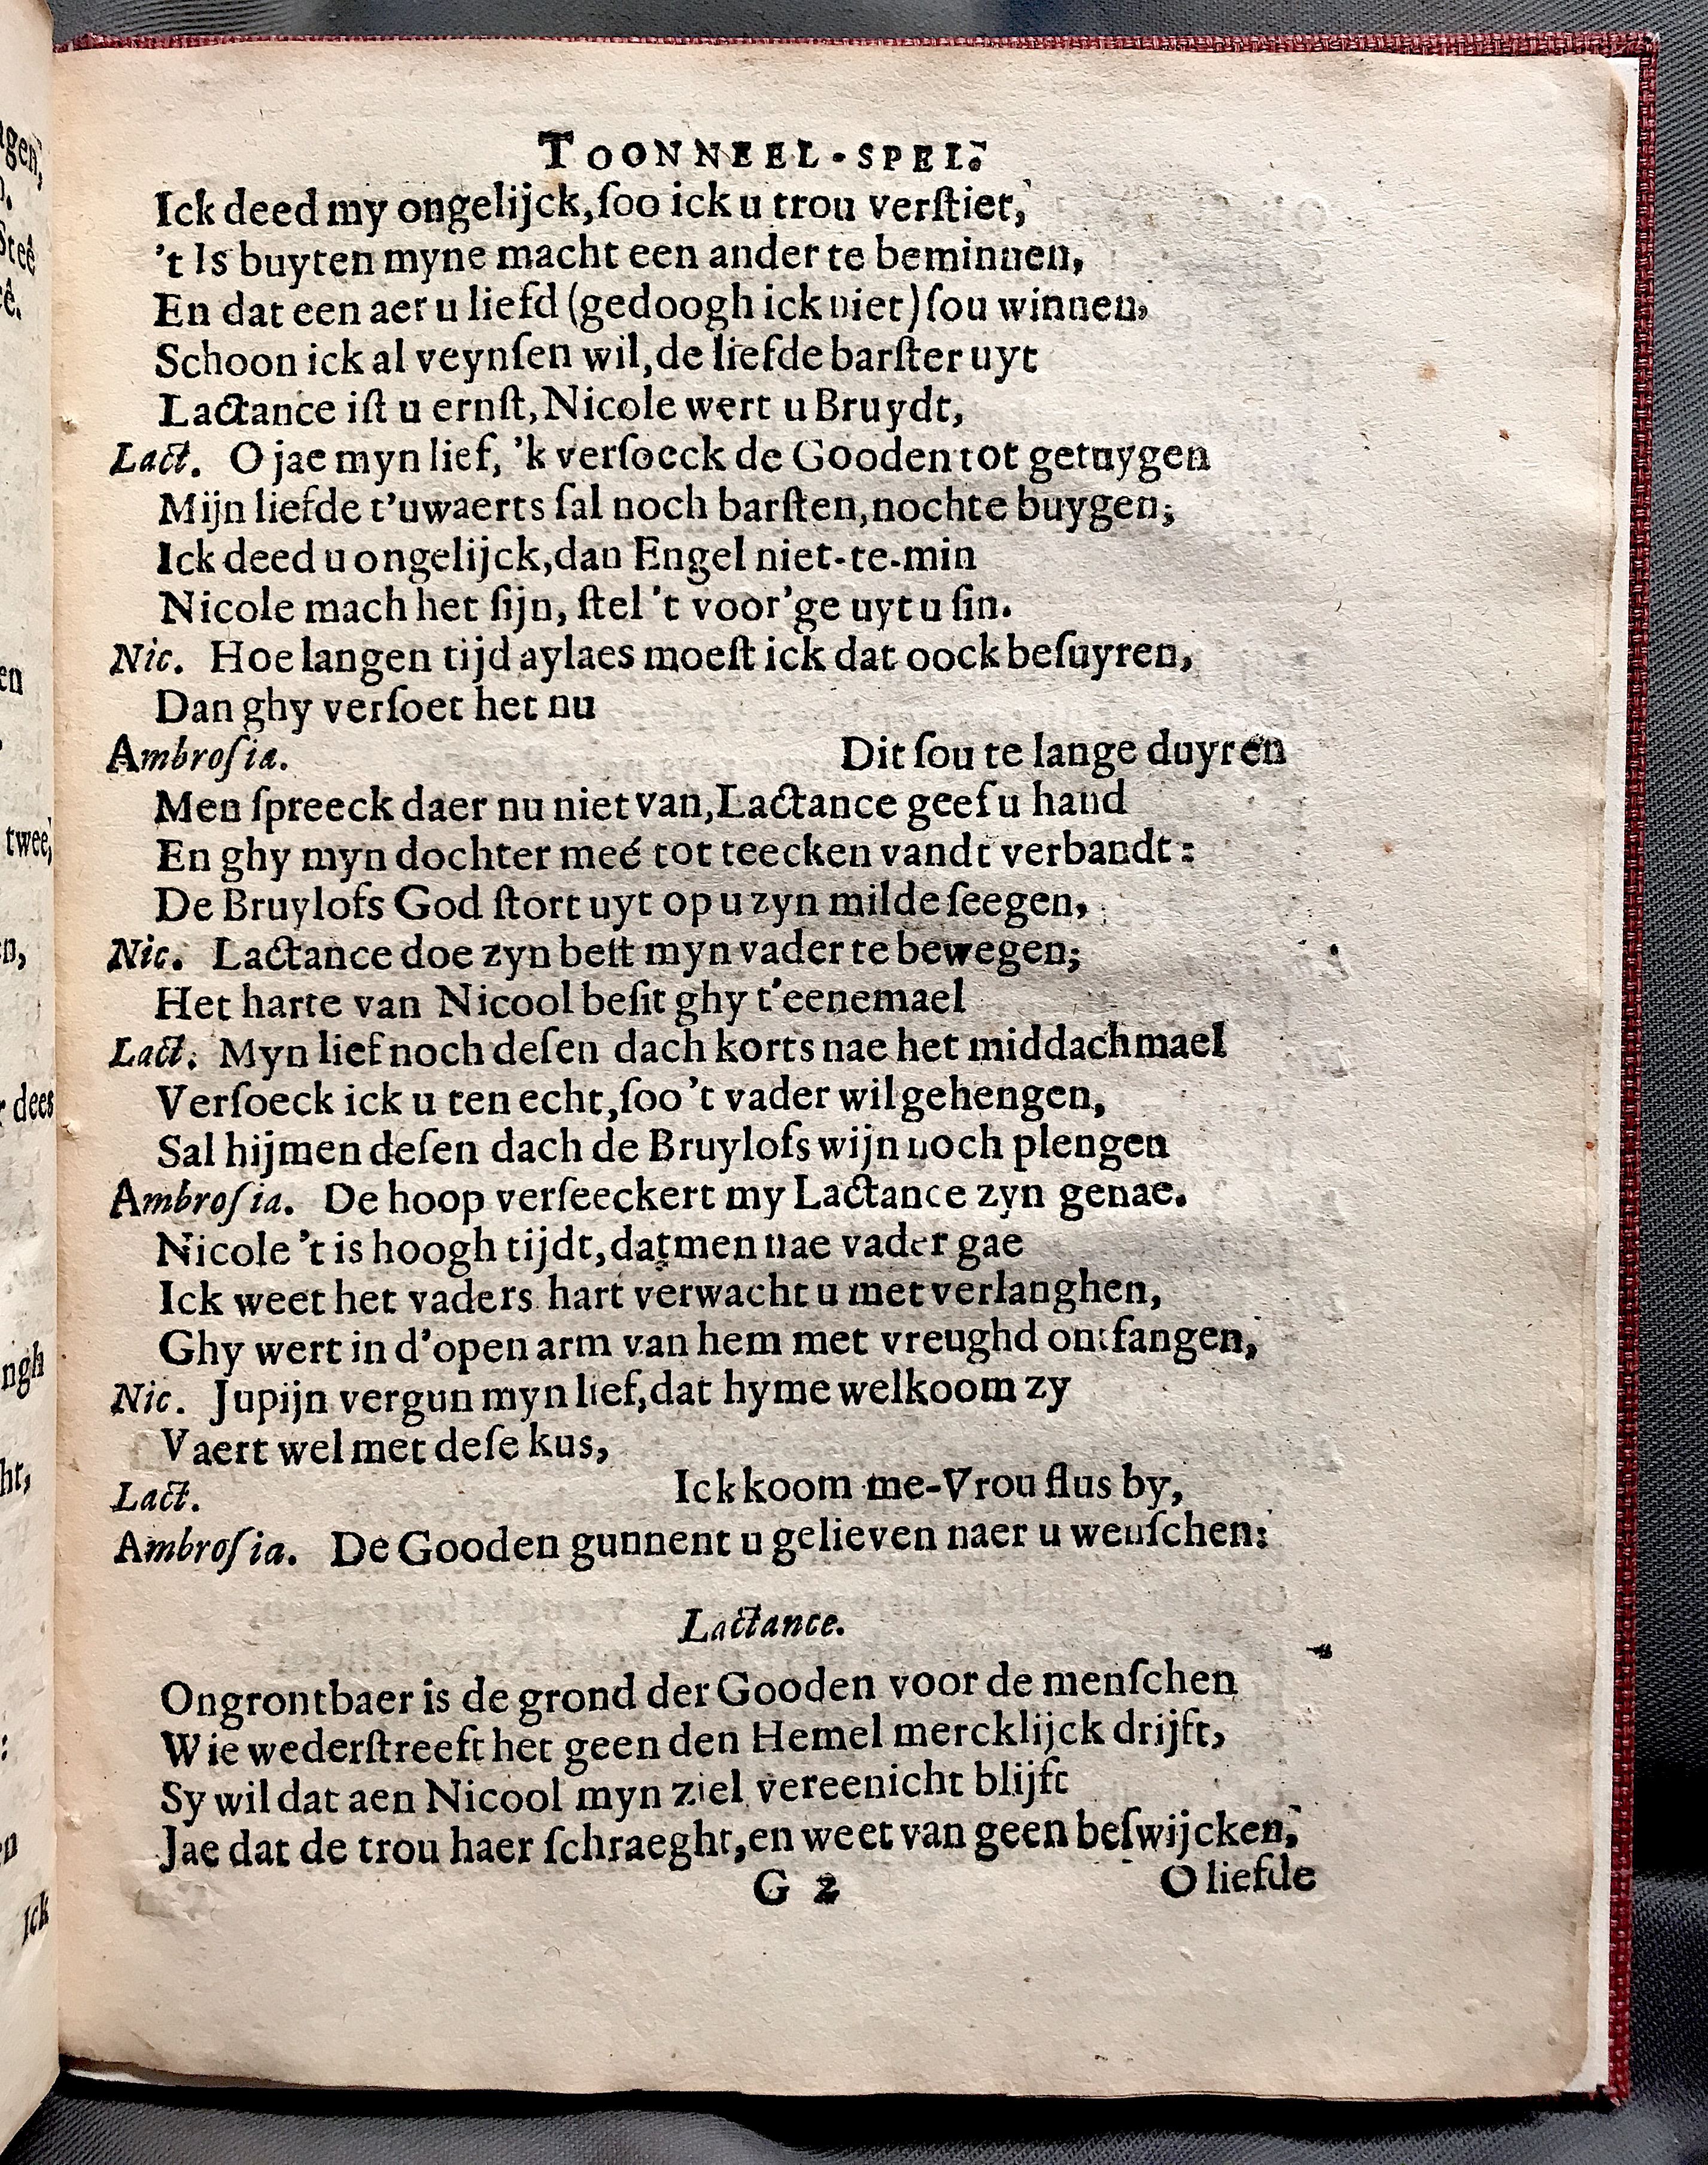 TOONNEEL-SPEL.
Ick deed my ongelijck, ſoo ick u trou verſtiet,
't Is buyten myne macht een ander te beminnen,
En dat een aer u liefd (gedoogh ick niet) ſou winnen,
Schoon ick al veynſen wil, de liefde barſter uyt
Lactance iſt u ernſt, Nicole wert u Bruydt,
Lact. O jae myn lief, 'k verſoeck de Gooden tot getuygen
Mijn liefde t'uwaerts ſal noch barſten, nochte buygen;
Ick deed u ongelijck, dan Engel niet-te-min
Nicole mach het ſijn, ſtel 't voor'ge uyt u ſin.
Nic. Hoe langen tijd aylaes moeſt ick dat oock beſuyren,
Dan ghy verſoet het nu
Ambroſia. Dit ſou te lange duyren
Men ſpreeck daer nu niet van, Lactance geef u hand
En ghy myn dochter meé tot teecken vandt verbandt:
De Bruylofs God ſtort uyt op u zyn milde ſeegen,
Nic. Lactance doe zyn beſt myn vader te bewegen;
Het harte van Nicool beſit ghy t'eenemael
Lact. Myn lief noch deſen dach korts nae het middachmael
Verſoeck ick u ten echt, ſoo 't vader wil gehengen,
Sal hijmen deſen dach de Bruylofs wijn noch plengen
Ambroſia. De hoop verſeeckert my Lactance zyn genae.
Nicole 't is hoogh tijdt, datmen nae vader gae
Ick weet het vaders hart verwacht u met verlanghen,
Ghy wert in d'open arm van hem met vreughd ontfangen,
Nic. Jupijn vergun myn lief, dat hy me welkoom zy
Vaert wel met deſe kus,
Lact. Ick koom me-Vrou ſlus by,
Ambroſia. De Gooden gunnent u gelieven naer u wenſchen:
Lactance.
Ongrontbaer is de grond der Gooden voor de menſchen
Wie wederſtreeft het geen den Hemel mercklijck drijft,
Sy wil dat aen Nicool myn ziel vereenicht blijft
Jae dat de trou haer ſchraeght, en weet van geen beſwijcken,
G 2 O liefde